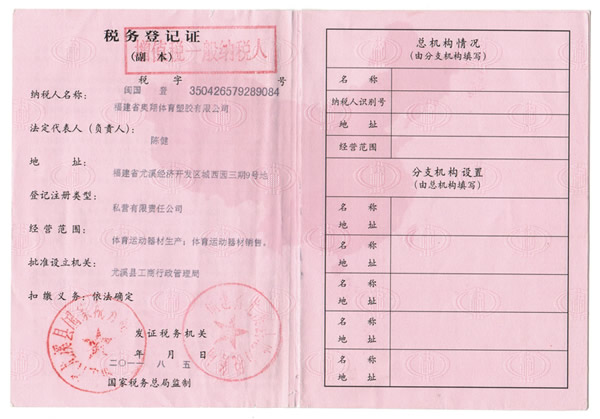 税务登记证
(副 本)
增值税一般纳税人
税 字 号
闽国 登 350426579289084
纳税人名称:
福建省奥翔体育塑胶有限公司
法定代表人(负责人):
陈健
地 址:
福建省尤溪经济开发区城西园三期9号地
登记注册类型:
私营有限责任公司
经营范围:
体育运动器材生产; 体育运动器材销售。
批准设立机关:
尤溪县工商行政管理局
扣缴义务:依法确定
发证税务机关
年 月 日
二〇一一 八 五
国家税务总局监制
总机构情况
(由分支机构填写)
名 称
纳税人识别号
地 址
经营范围
分支机构设置
(由总机构填写)
名 称
地 址
名 称
地 址
名 称
地 址
名 称
地 址
名 称
地 址